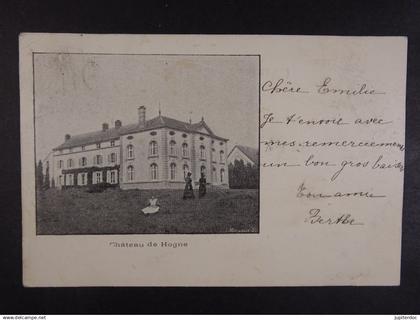 Chère Emilie
Je t'envoie avec
mes remerciement
un bon gros baiser
Ton amie
Berthe
Château de Hogne
www.jupiterdoc.com